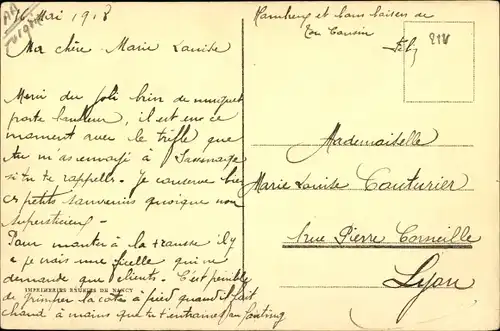 16 Mai 1918
Ma chère Marie Louise
Merci du joli brin de muguet
porte bonheur, il est en ce
moment avec le trèfle que
tu m'as envoyé à Sassenage
si tu te rappelle. Je conserve bien
ces petits souvenirs quoique non
superstitieux.
Pour monter à la trousse il y
a je vais une ficelle qui ne
demande que clients. C'est pénible
de grimper la côte à pied quand il fait
chaud à moins que tu t'entraines au footing
IMPRIMERIES RÉUNIES DE NANCY
Nombreux et bons baisers de
ton Cousin
Feli
218
Mademoiselle
Marie Louise Couturier
rue Pierre Corneille
Lyon